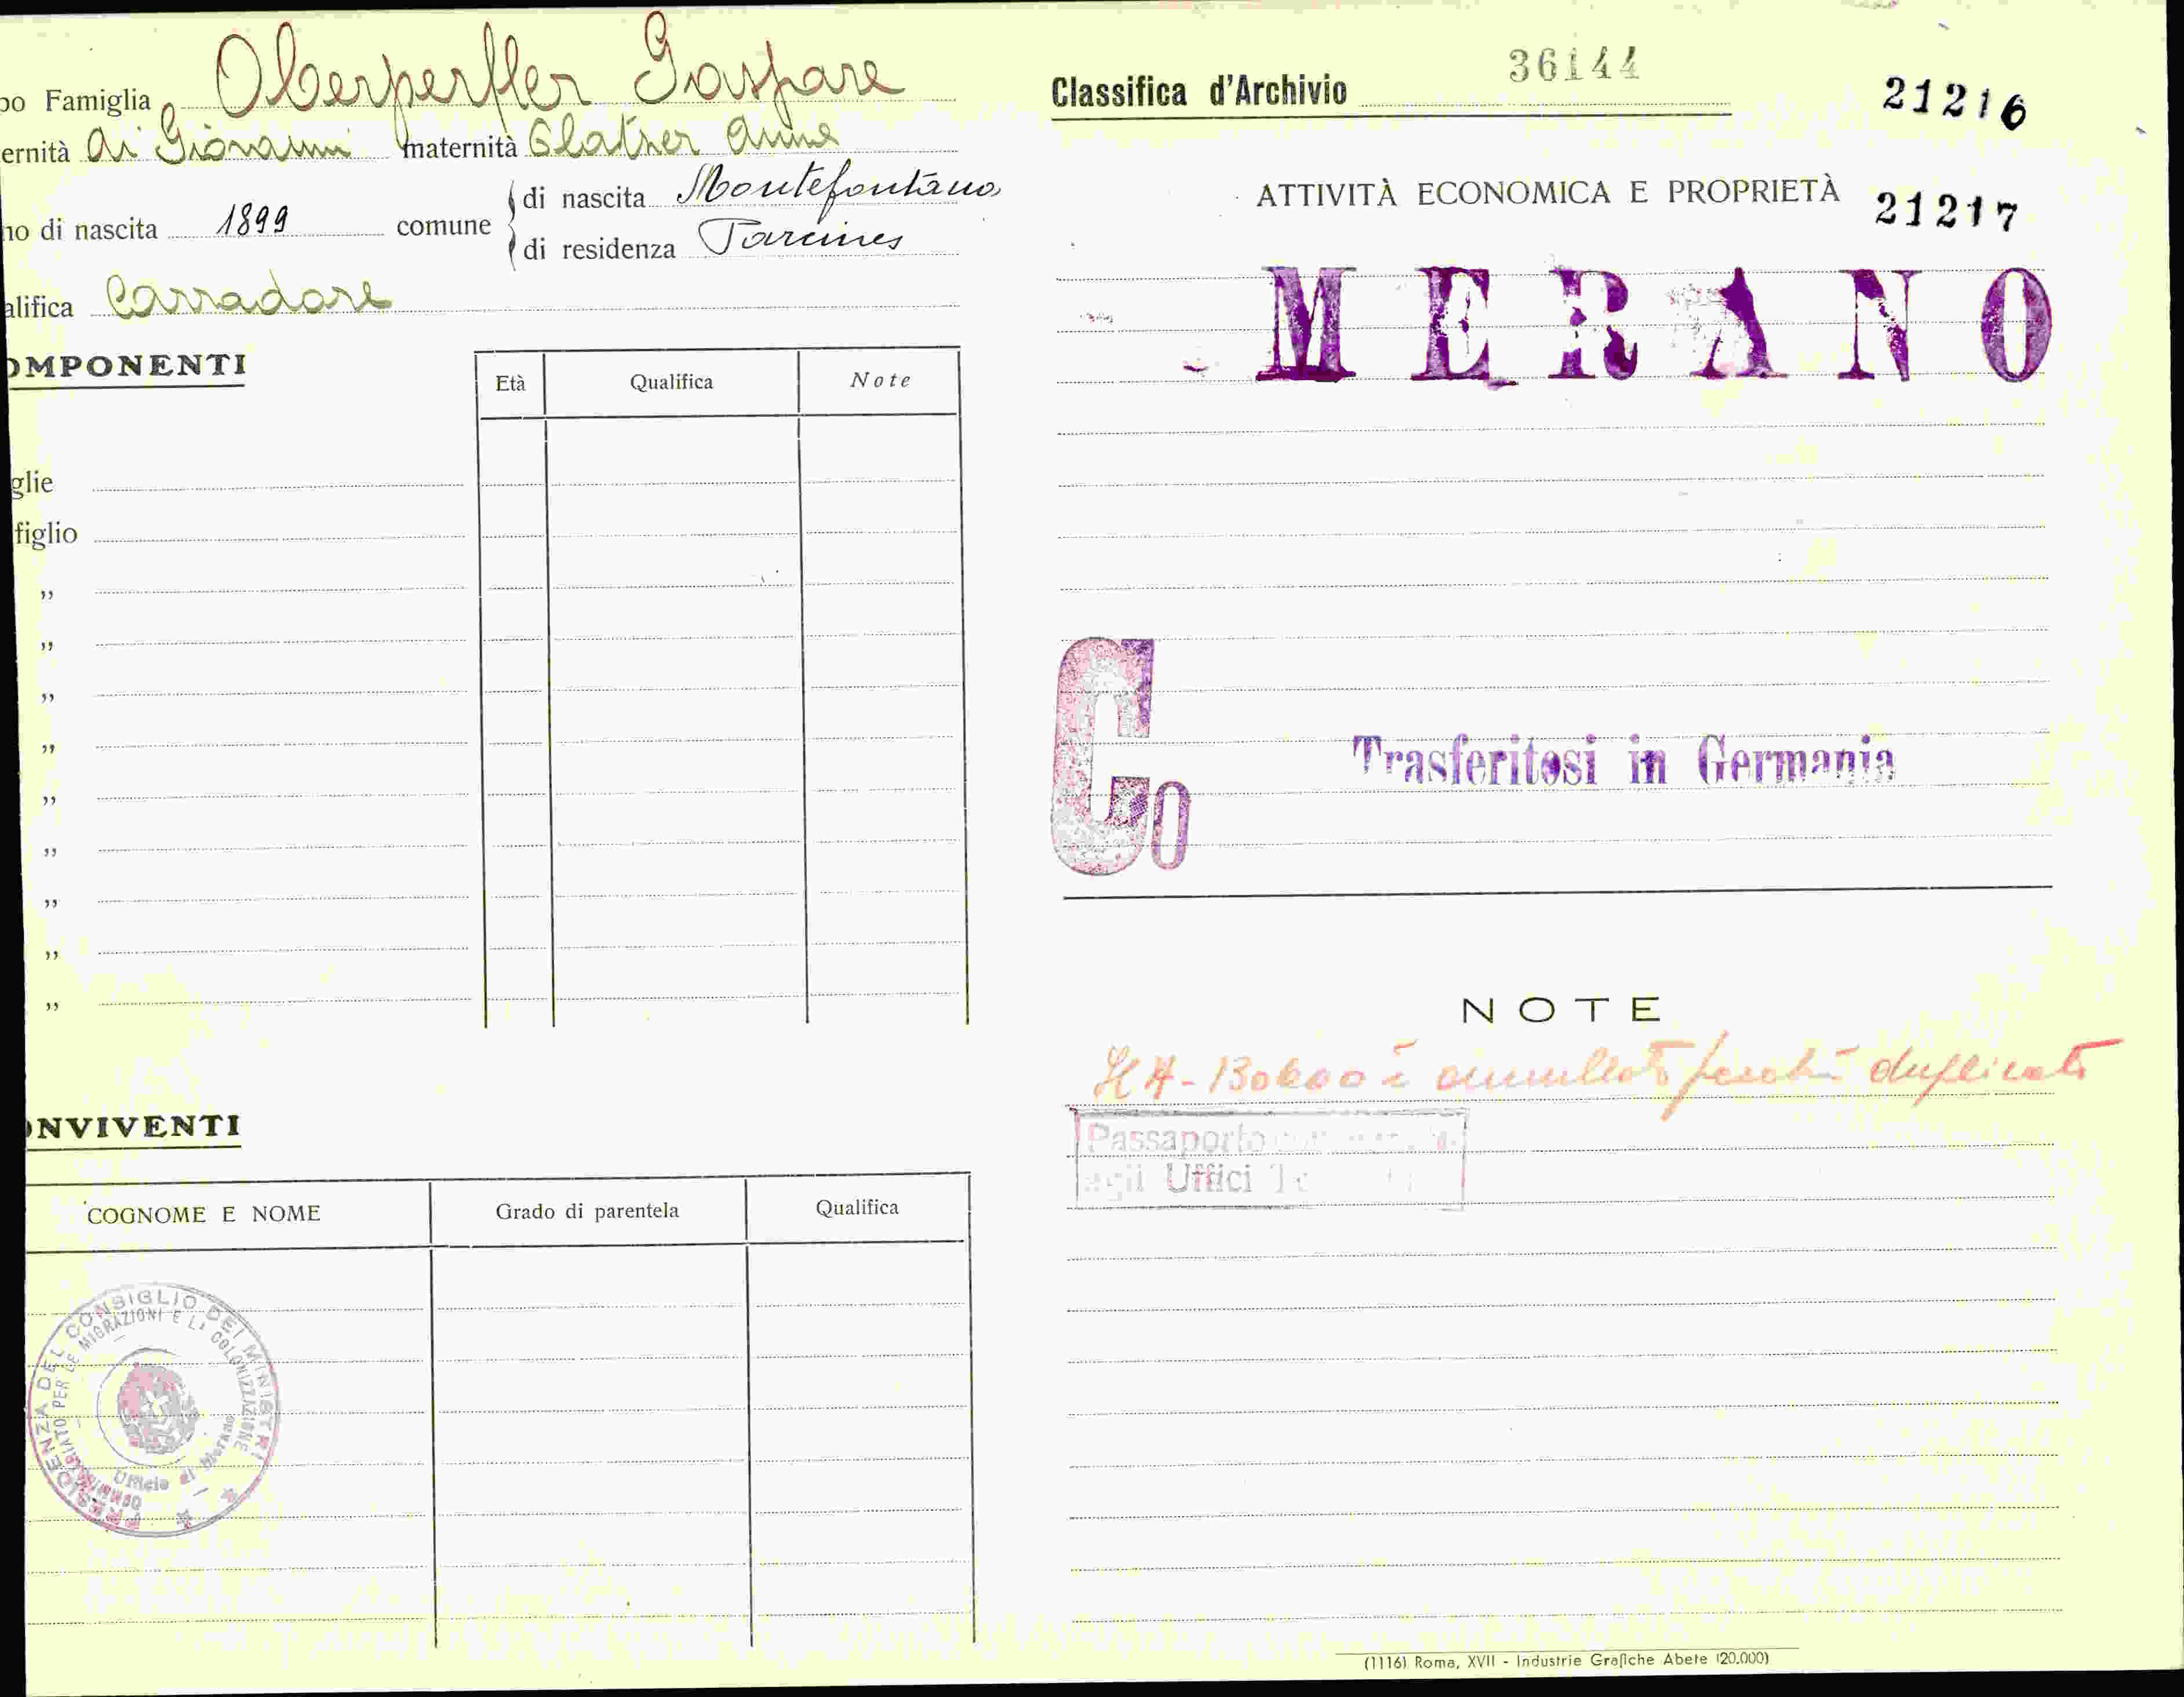 po Famiglia Oberperfler Gaspare
ernità di Giovanni maternità Glatzer Anna
no di nascita 1899 comune
di nascita Montefontana
di residenza Parcines
alifica Carradore
OMPONENTI
Età Qualifica Note
glie
figlio
"
"
"
"
"
"
"
"
"
ONVIVENTI
COGNOME E NOME Grado di parentela Qualifica
PRESIDENZA DEL CONSIGLIO DEI MINISTRI
COMMISSARIATO PER LE MIGRAZIONI E LA COLONIZZAZIONE
Ufficio di Merano
Classifica d'Archivio 36144
21216
ATTIVITÀ ECONOMICA E PROPRIETÀ
21217
MERANO
Co
Trasferitosi in Germania
NOTE
è annullato perché duplicato
Passaporto
agli Uffici
(1116) Roma, XVII - Industrie Grafiche Abete (20.000)